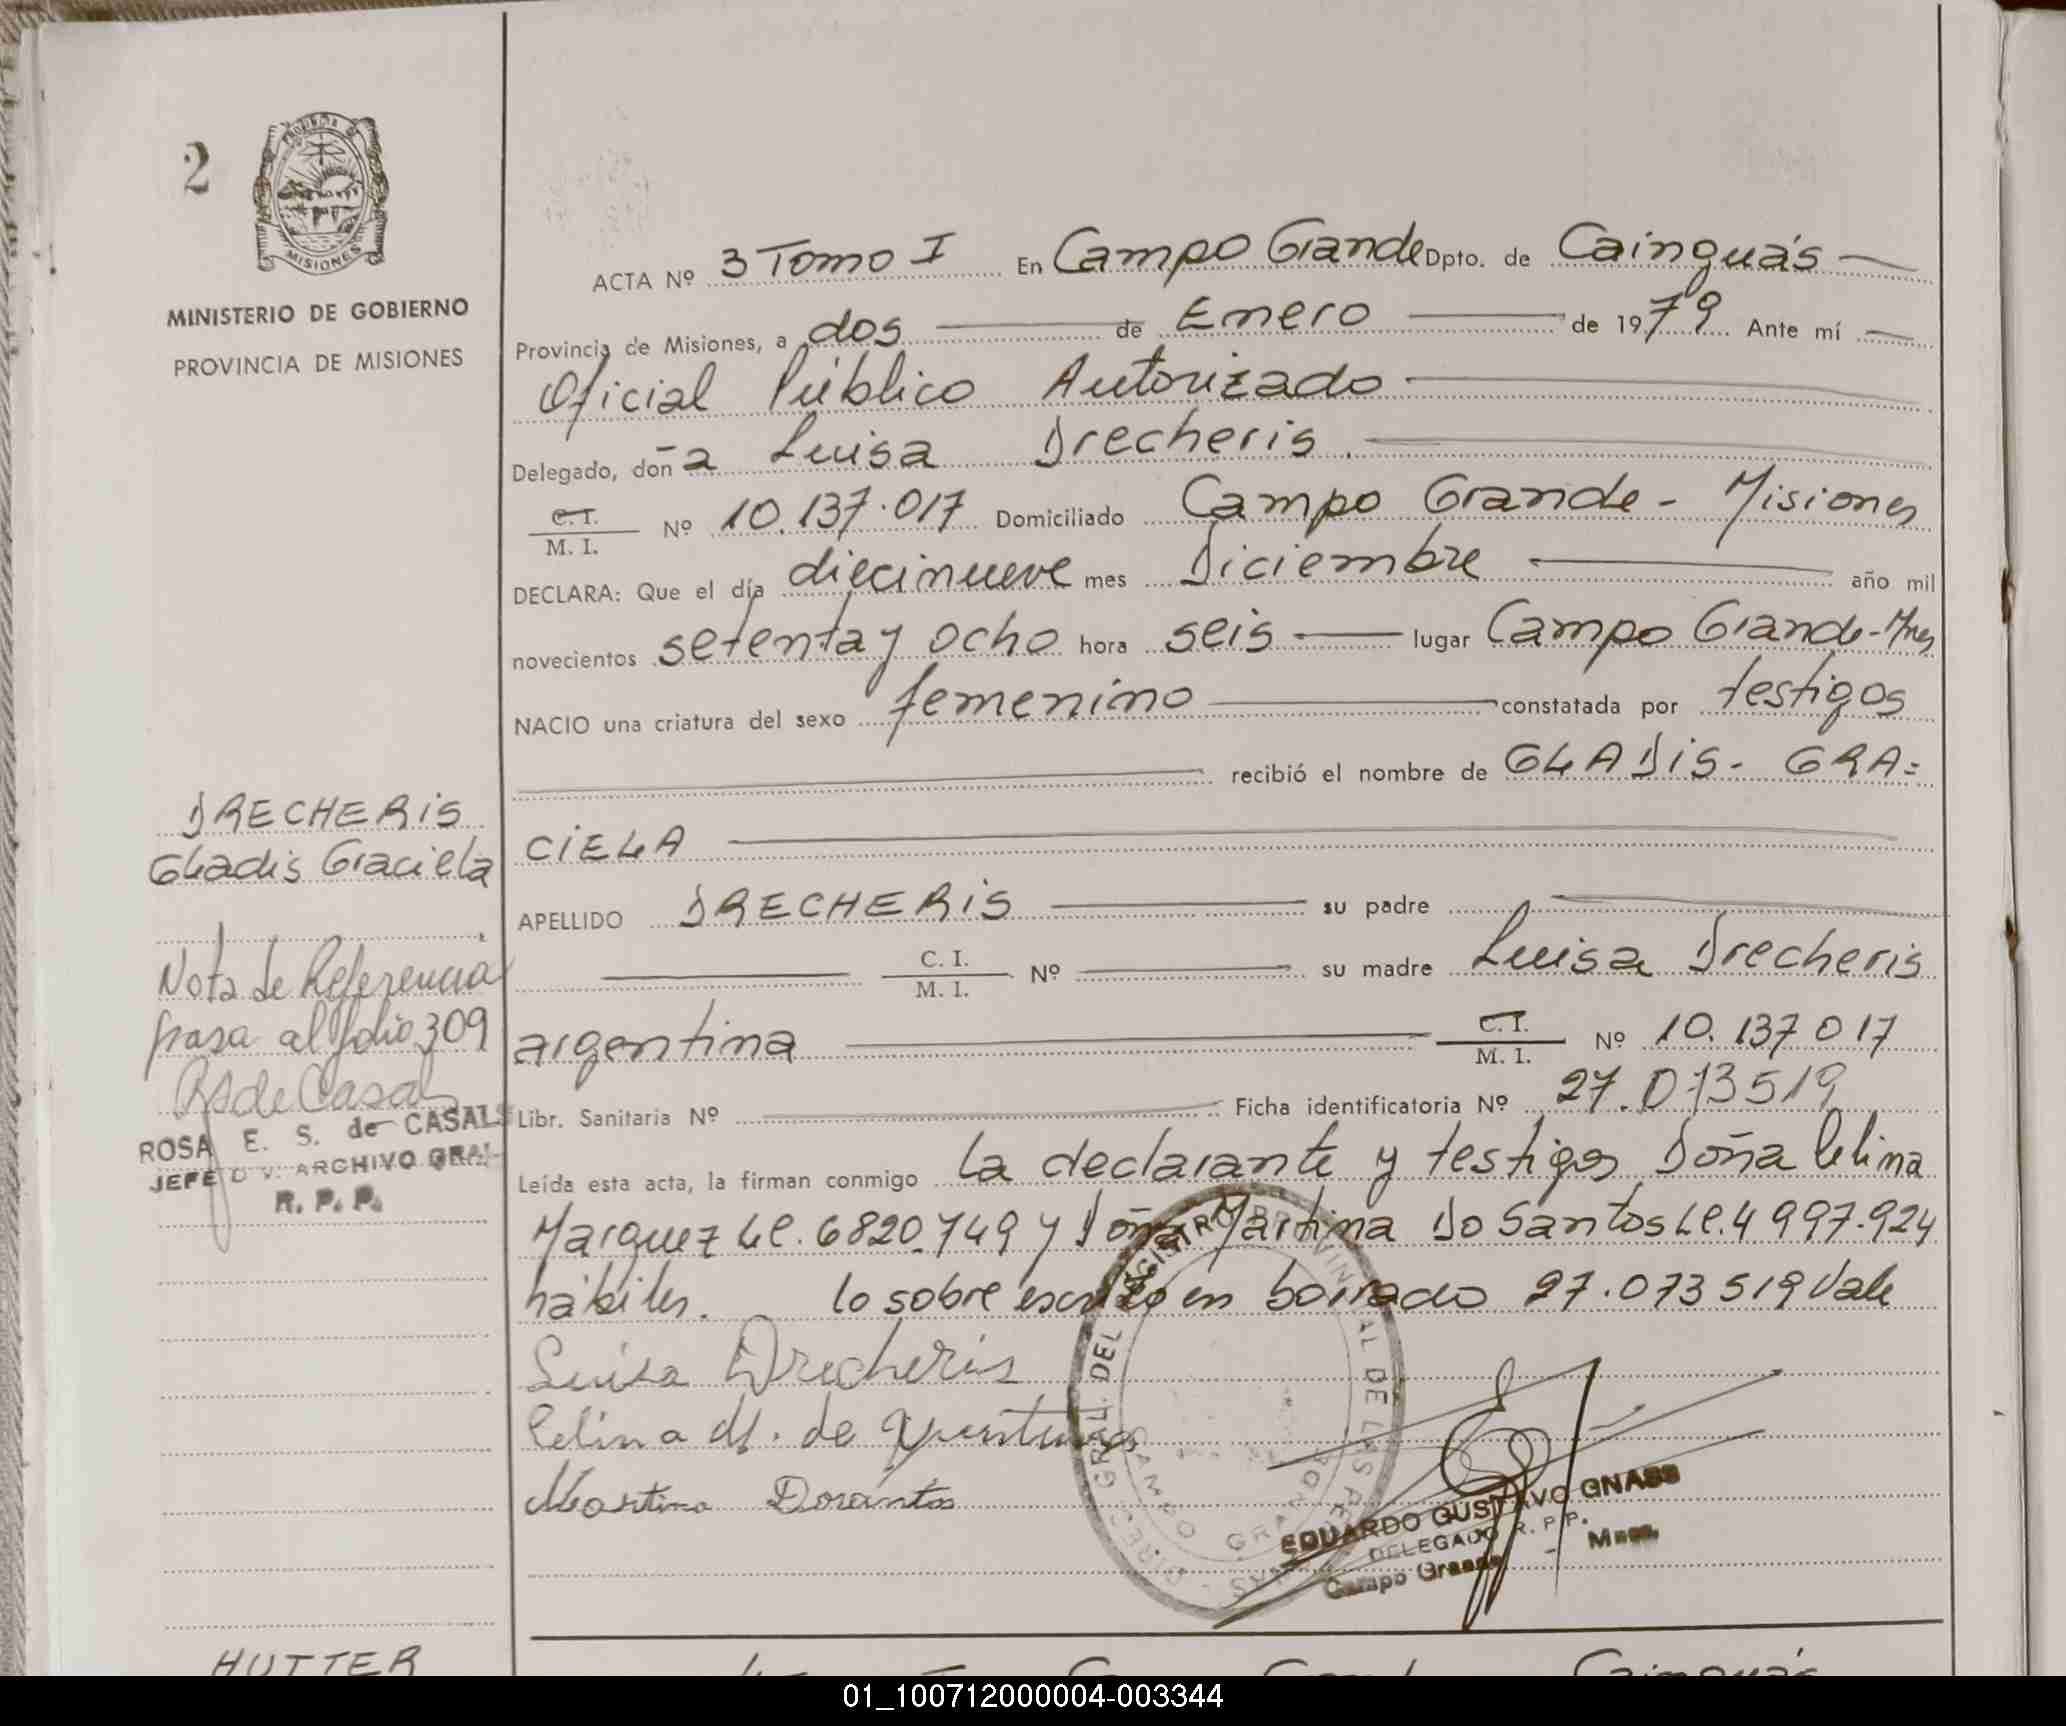 2
PROVINCIA DE
MISIONES
MINISTERIO DE GOBIERNO
PROVINCIA DE MISIONES
ACTA Nº 3 Tomo I En Campo Grande Dpto. de Cainguás
Provincia de Misiones, a dos de Enero de 1979 Ante mí
Oficial Público Autorizado
Delegado, doña Luisa Drecheris
C. I. / M. I. Nº 10.137.017 Domiciliado Campo Grande - Misiones
DECLARA: Que el día diecinueve mes Diciembre año mil
novecientos setenta y ocho hora seis lugar Campo Grande - Mnes
NACIO una criatura del sexo femenino constatada por testigos
recibió el nombre de GLADIS - GRA=
CIELA
DRECHERIS
Gladis Graciela
APELLIDO DRECHERIS su padre
C. I. / M. I. Nº su madre Luisa Drecheris
argentina C. I. / M. I. Nº 10.137 017
Libr. Sanitaria Nº Ficha identificatoria Nº 27.073519
Nota de Referencia
pasa al folio 309
RSdeCasals
ROSA E. S. de CASALS
JEFE DIV. ARCHIVO GRAL
R. P. P.
Leída esta acta, la firman conmigo la declarante y testigos Doña Celina
Marquez Lc. 6820.749 y Doña Martina Do Santos Lc. 4 997.924
hábiles. lo sobre escrito en borrado 27.073519 Vale
Luisa Drecheris
Celina M. de
Martina Dosantos
DIREC. GRAL. DEL REGISTRO PROVINCIAL DE LAS PERSONAS
CAMPO GRANDE
EDUARDO GUSTAVO GNASS
DELEGADO R. P. P.
Campo Grande - Mnes.
HUTTER
01_100712000004-003344